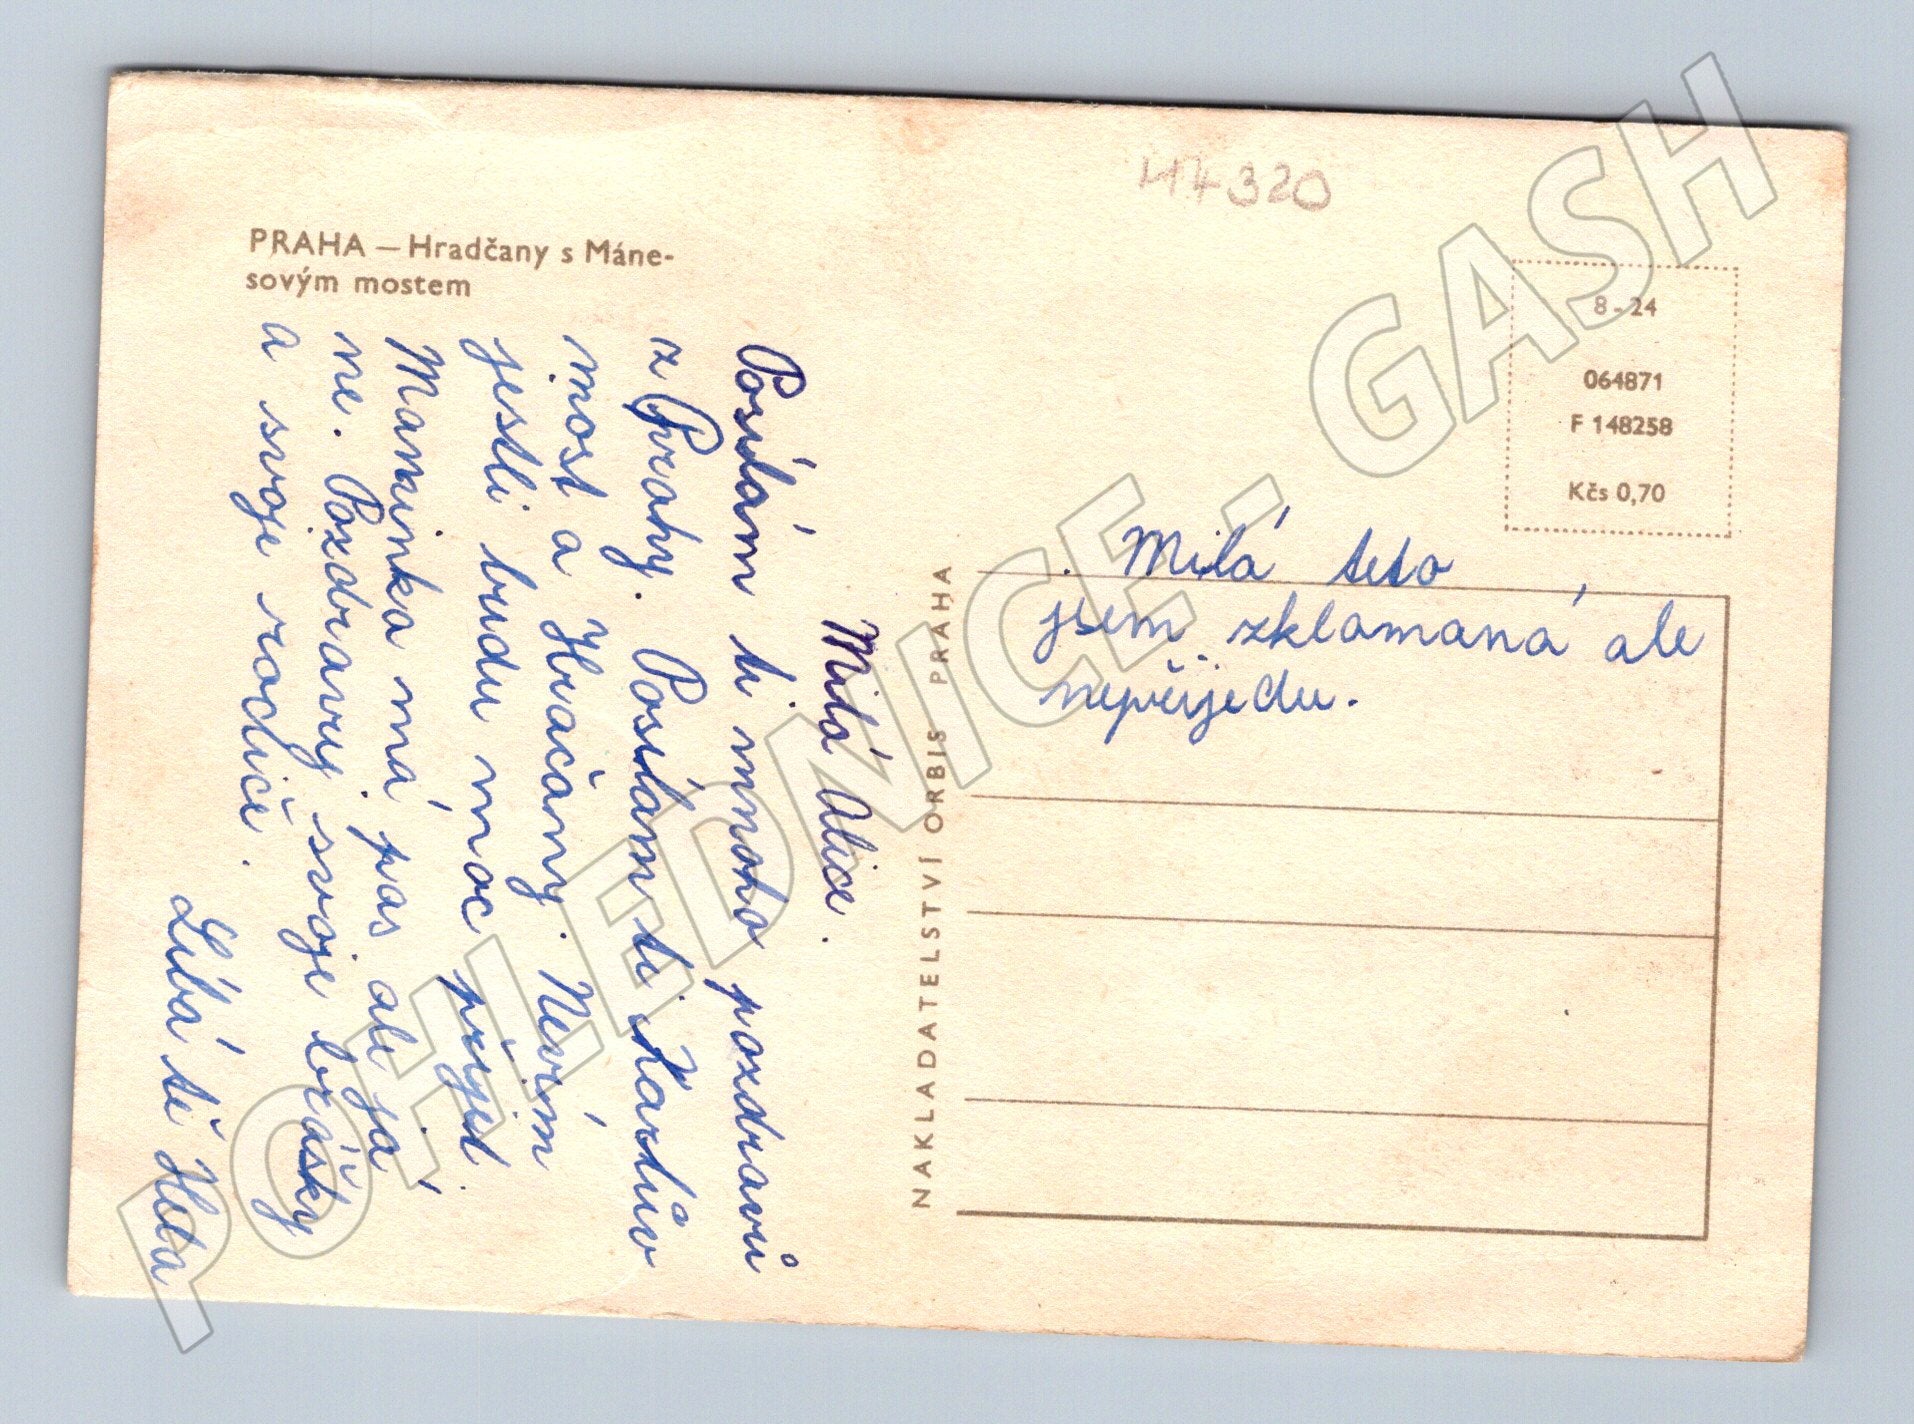 PRAHA — Hradčany s Máne-
sovým mostem
Milá Alice.
Posílám ti mnoho pozdravů
z Prahy. Posílám ti Karlův
most a Hračany. Nevím
jestli budu moc přijet.
Maminka má pas ale já
ne. Pozdravuj svoje brášky
a svoje rodiče.
Líbá tě Hela
NAKLADATELSTVÍ ORBIS PRAHA
44320
8 - 24
064871
F 148258
Kčs 0,70
Milá teto
jsem zklamaná ale
nepřijedu.
POHLEDNICE - GASH